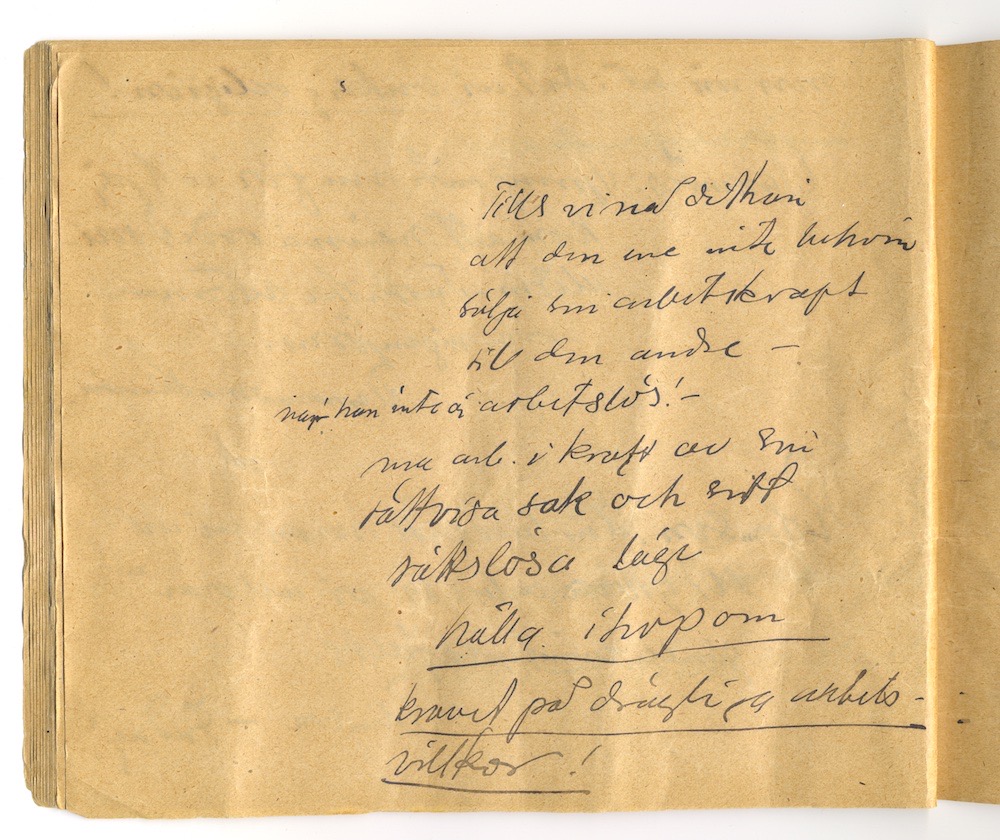 Tills vi nå dithän
att den ene inte behöver
sälja sin arbetskraft
till den andre —
när han inte är arbetslös! —
må arb. i kraft av sin
rättvisa sak och sitt
rättslösa läge
hålla ihop om
kravet på drägliga arbets-
villkor !